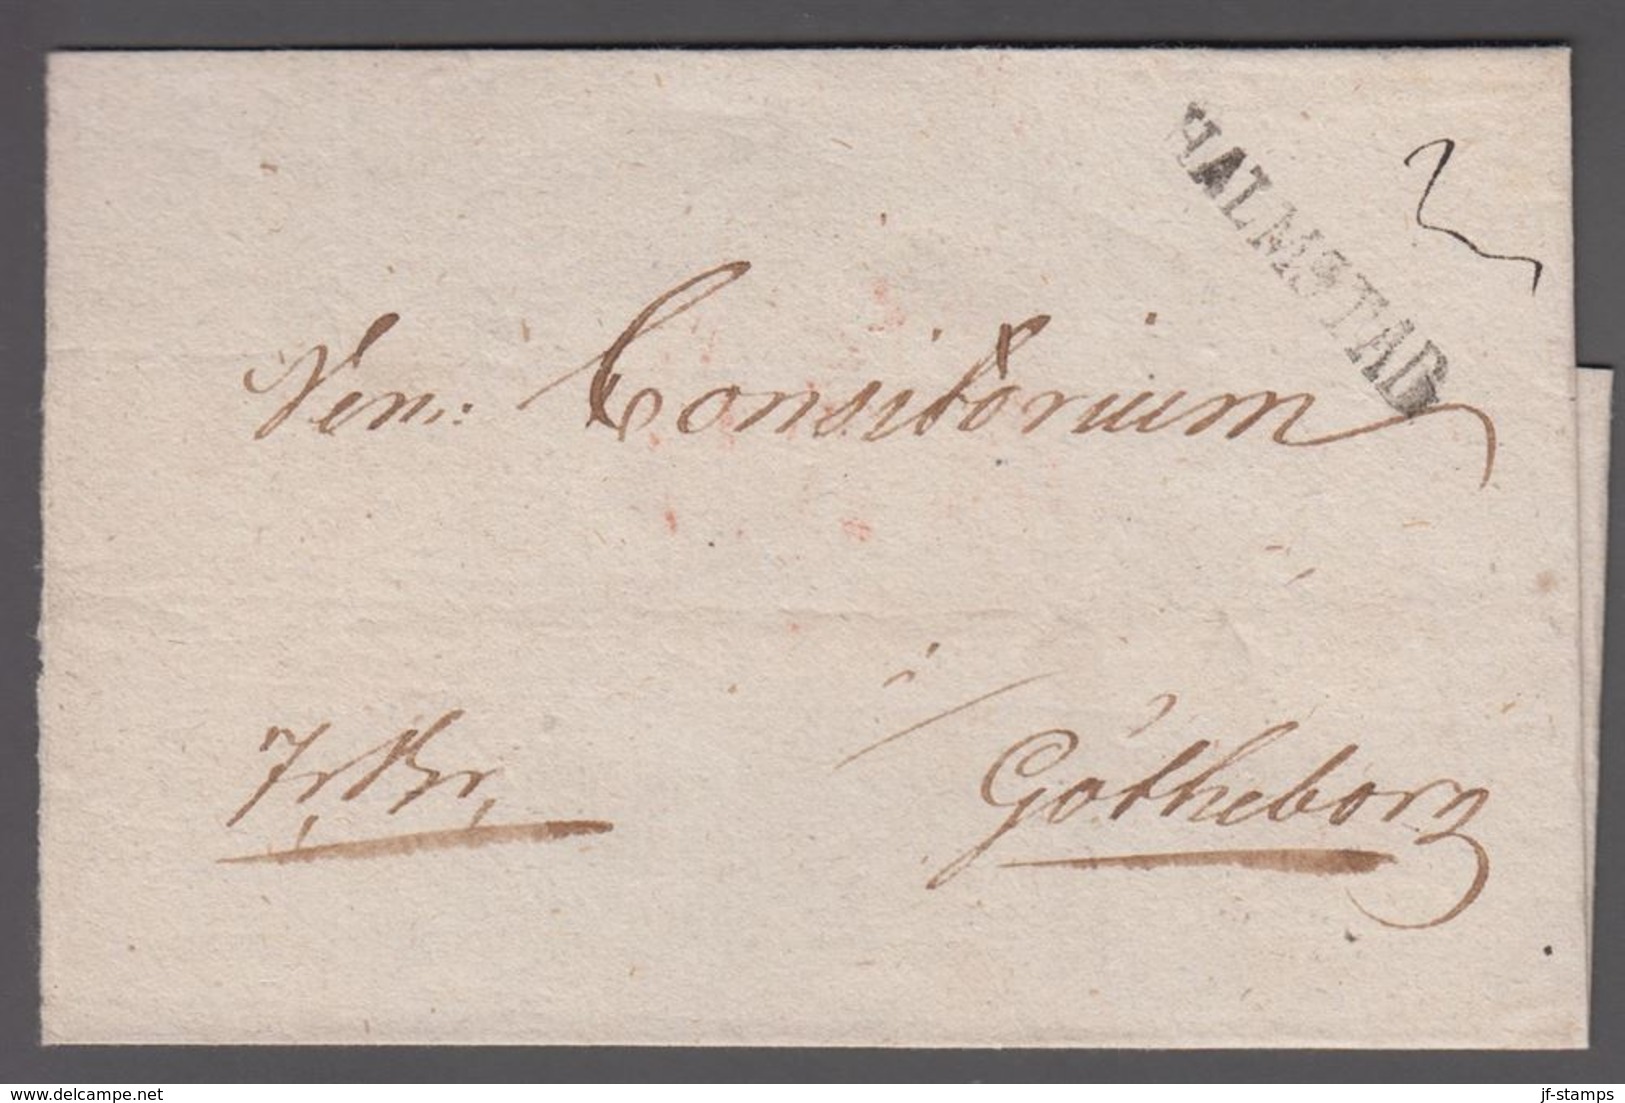 HALMSTAD
Ven: Consitorium
Götheborg
www.delcampe.net
jf-stamps